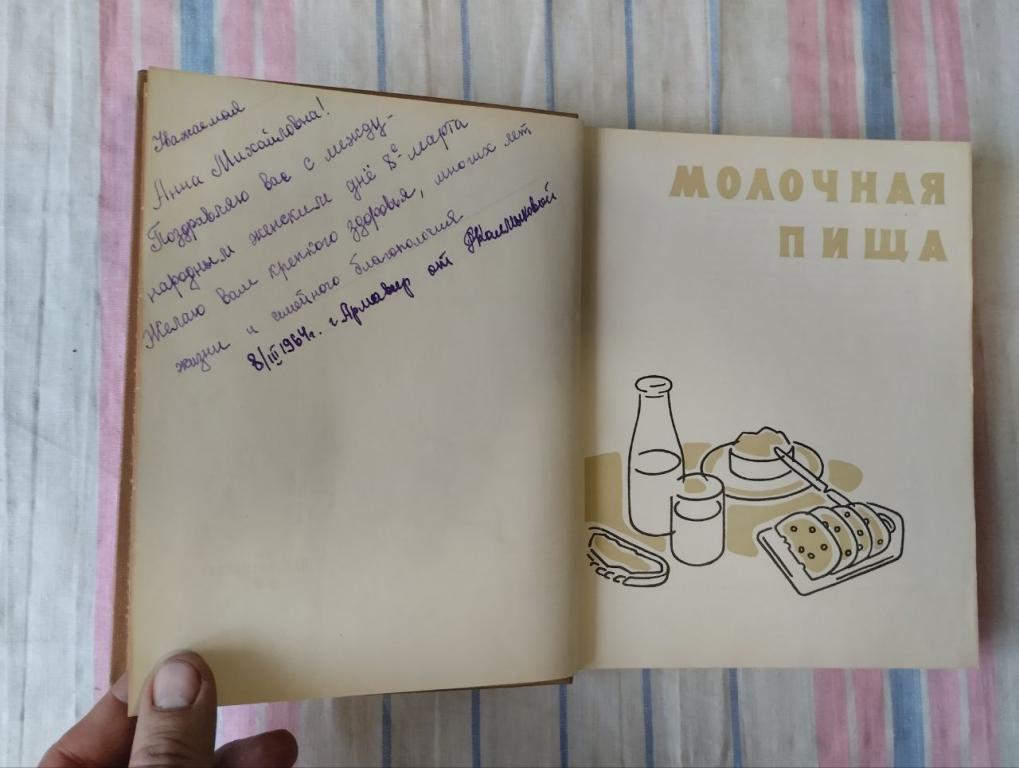 Уважаемая
Анна Михайловна!
Поздравляю вас с между-
народным женским днё 8е марта
Желаю вам крепкого здоровья, многих лет
жизни и семейного благополучия
8/III 1964г. г. Армавир от
МОЛОЧНАЯ
ПИЩА